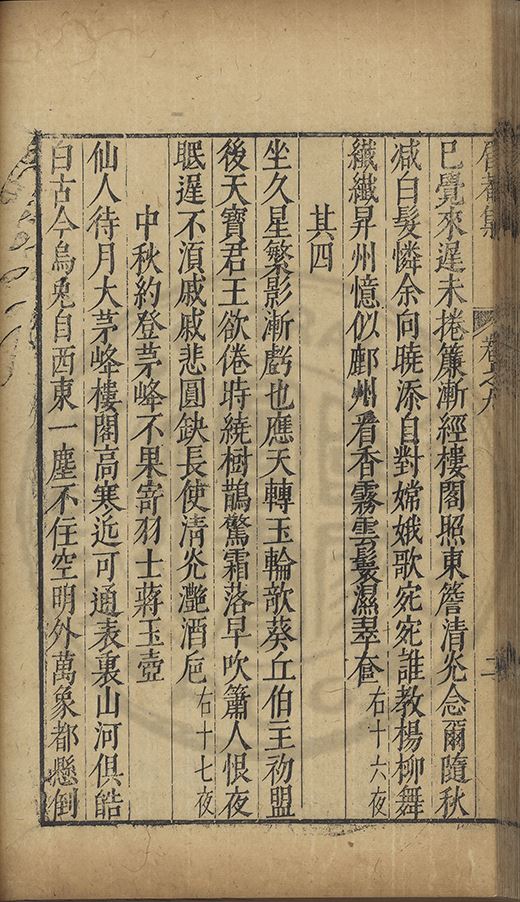 巳覺來遲未捲簾漸經樓閣照東簷清光念爾隨秋
減白髮憐余向曉添自對嫦娥歌宛宛誰教楊柳舞
纖纖昇州憶似鄜州看香霧雲鬟濕翠奩右十六夜
其四
坐久星繁影漸虧也應天轉玉輪欹葵丘伯主初盟
後天寶君王欲倦時繞樹鵲驚霜落早吹簫人恨夜
眠遲不湏戚戚悲圓缺長使清光灔酒巵右十七夜
中秋約登茅峰不果寄羽士蔣玉壺
仙人待月大茅峰樓閣高寒近可通表裏山河俱皓
白古今烏兎自西東一塵不住空明外萬象都懸倒